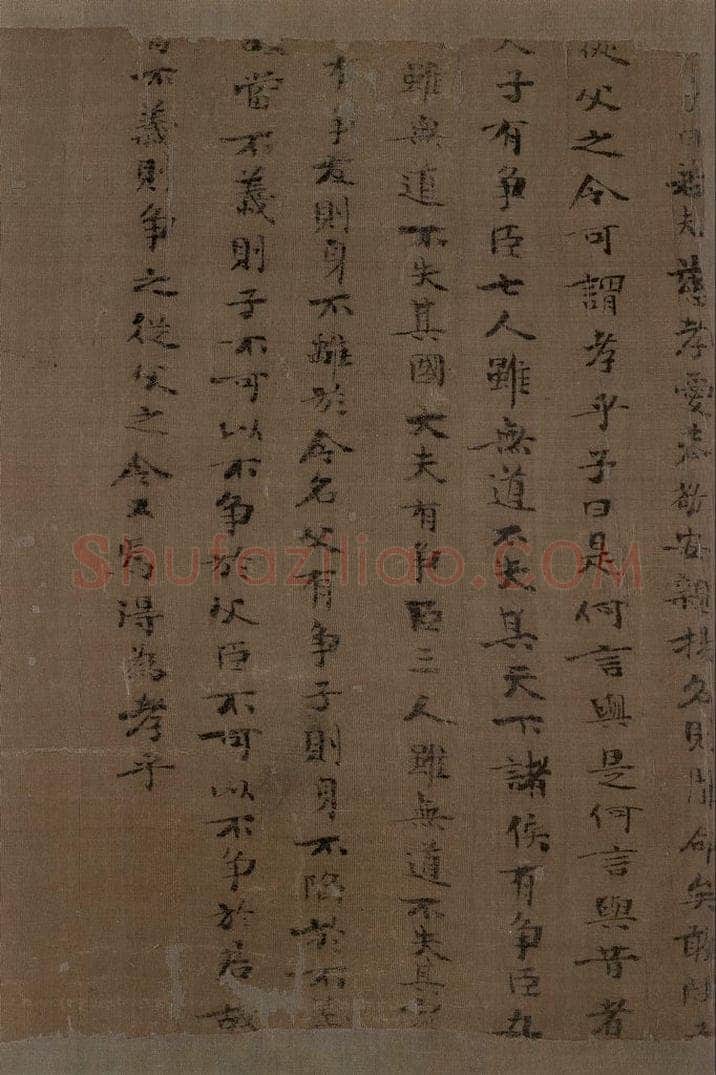 曰若夫慈孝愛恭敬安親揚名則聞命矣敢問
從父之令可謂孝乎子曰是何言與是何言與昔者
天子有争臣七人雖無道不失其天下諸侯有争臣五
雖無道不失其國大夫有争臣三人雖無道不失其家
有争友則身不離於令名父有争子則身不陷於不義
當不義則子不可以不争於父臣不可以不争於君故
當不義則争之從父之令又焉得為孝乎
Shufaziliao.COM